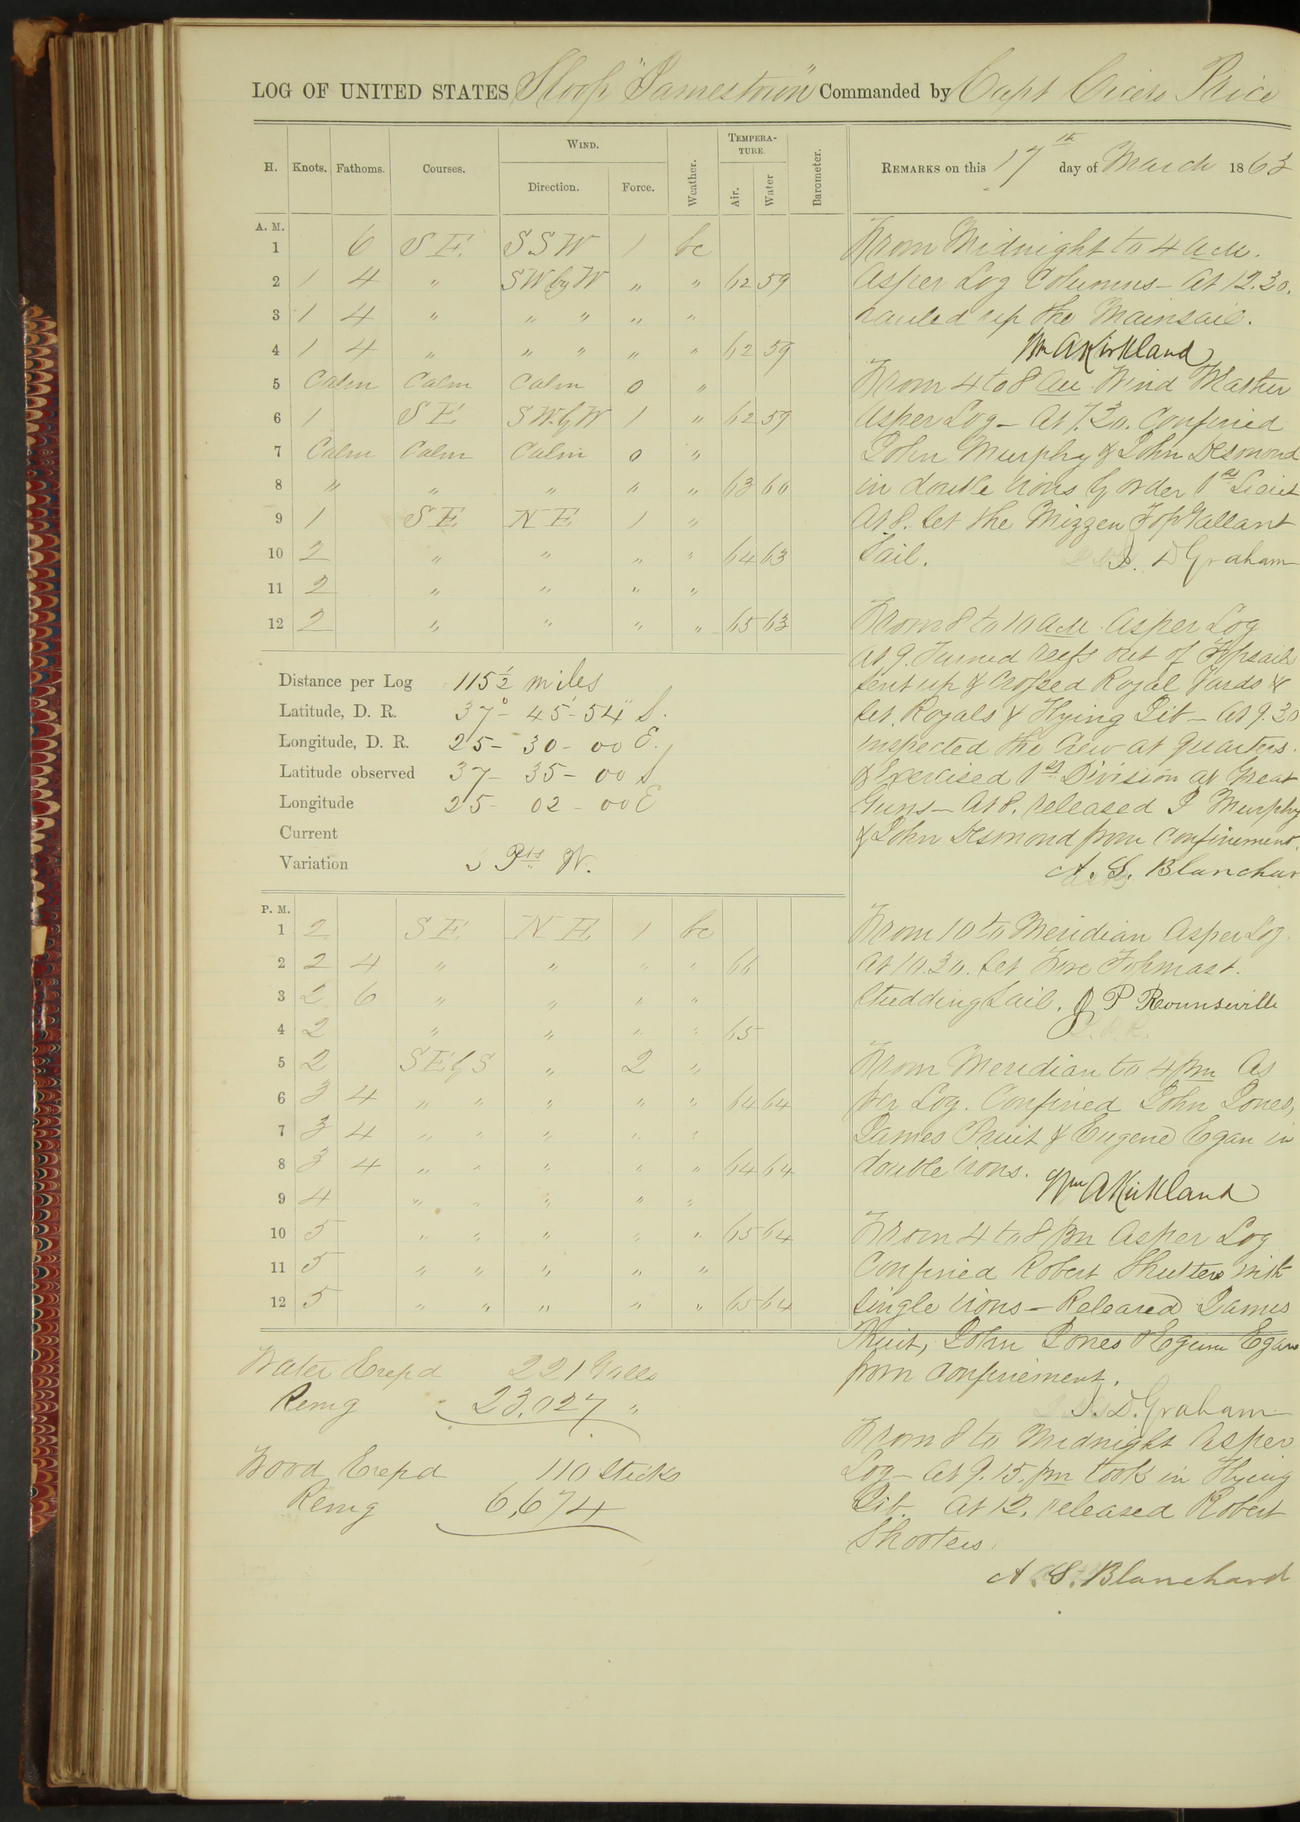 LOG OF UNITED STATES Sloop "Jamestown" Commanded by Capt Cicero Price
H. Knots. Fathoms. Courses. WIND. Direction. Force. Weather. TEMPERATURE. Air. Water Barometer.
REMARKS on this 17th day of March 1863
A. M.
1 6 S E. S S W 1 bc
2 1 4 " SW by W " " 62 59
3 1 4 " " " " "
4 1 4 " " " " " 62 59
5 Calm Calm Calm 0 "
6 1 S E SW. by W 1 " 62 59
7 Calm Calm Calm 0 "
8 " " " " " 63 60
9 1 S E N E 1 "
10 2 " " " " 64 63
11 2 " " " "
12 2 " " " " 65 63
Distance per Log 115½ miles
Latitude, D. R. 37° - 45' - 54" S.
Longitude, D. R. 25 - 30 - 00 E.
Latitude observed 37 - 35 - 00 S
Longitude 25 - 02 - 00 E
Current
Variation Pts W.
P. M.
1 2 S E N E 1 bc
2 2 4 " " " " 66
3 2 6 " " " "
4 2 " " " " 65
5 2 SE by S " 2 "
6 3 4 " " " " " 64 64
7 3 4 " " " " "
8 3 4 " " " " " 64 64
9 4 " " " " "
10 5 " " " " " 65 64
11 5 " " " " "
12 5 " " " " " 65 64
Water Expd 221 Galls
Remg 23,027 "
Wood Expd 110 Sticks
Remg 6,674
From Midnight to 4 a.m.
As per Log Columns - At 12.30.
hauled up the Mainsail.
Wm A Kirkland
From 4 to 8 am Wind Weather
As per Log - At 7.30. Confined
John Murphy & John Desmond
in double irons by order 1st Lieut
At 8. Set the Mizzen Top Gallant
Sail. J. D Graham
From 8 to 10 a.m. As per Log
At 9. Turned reefs out of Topsails
Sent up & Crossed Royal Yards &
Set Royals & Flying Jib - At 9.30
inspected the crew at quarters.
& Exercised 1st Division at Great
Guns - At 8. released J Murphy
& John Desmond from confinement.
A. S. Blanchar
From 10 to Meridian As per Log.
At 10.30. Set Fore Topmast.
Studding Sail. J P Rounseville
From Meridian to 4 pm As
per Log. Confined John Jones,
James Fruit & Eugene Egan in
double irons.
Wm A Kirkland
From 4 to 8 pm As per Log
Confined Robert Shutters with
Single irons - Released James
Fruit, John Jones & Eugene Egan
from confinement.
J. D. Graham
From 8 to Midnight As per
Log - At 9.15. pm took in Flying
Jib At 12. released Robert
Shooters.
A. S. Blanchard